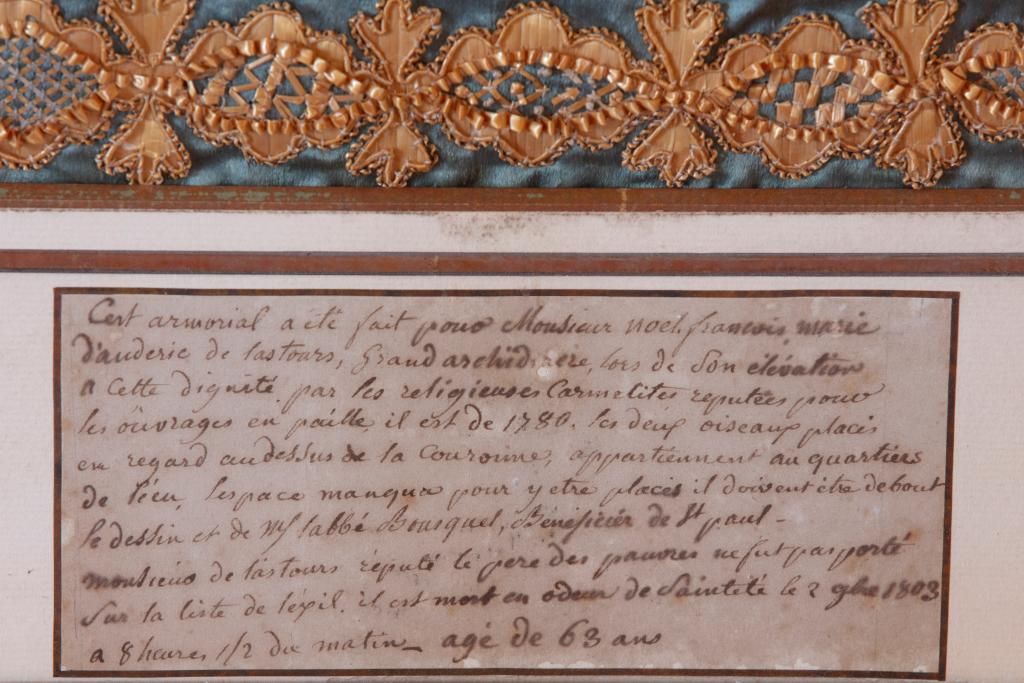 Cest armorial a été fait pour Monsieur noel, françois, marie
D'auderic de lastours, Grand archidiacre, lors de Son élévation
a Cette dignité par les religieuses Carmelites reputées pour
les ouvrages en paille, il est de 1780. les deux oiseaux placés
en regard audessus de la Couronne, appartiennent au quartiers
de l'écu, l'espace manqua pour y etre placés il doivent être debout
le dessin et de Mr l'abbé Bousquet, Bénéficier de St paul -
monsieur de lastours réputé le pere des pauvres ne fut pas porté
Sur la liste de l'exil. il est mort en odeur de Sainteté le 2 9bre 1803
a 8 heures 1/2 du matin_ agé de 63 ans